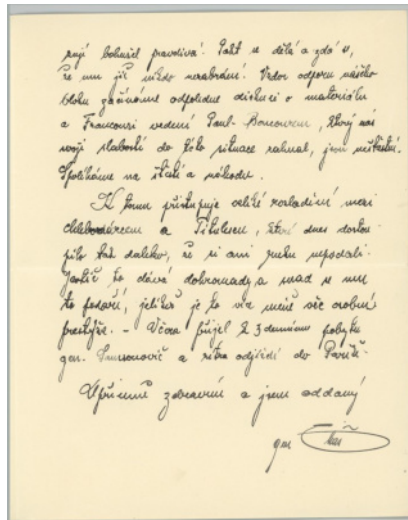 zují bohužel pravdivá. Pakt se dělá a zdá se,
že mu již nikdo nezabrání. Vzdor odporu našeho
bloku začínáme odpoledne diskusi o materiálu
a Francouzi vedeni Paul-Boncourem, který nás
svojí slabostí do této situace zahnal, jsou nešťastni.
Spoléháme na štěstí a náhodu.
K tomu přistupuje veliké rozladění mezi
a Titulescu, které dnes dostou-
pilo tak daleko, že si ani ruku nepodali.
Jevtić to dává dohromady a snad se mu
to podaří, jelikož je to víc méně věc osobní
prestýže. - Včera přijel k 3 dennímu pobytu
gen. a zítra odjíždí do Paříže.
Upřímně zdravím a jsem oddaný
gen